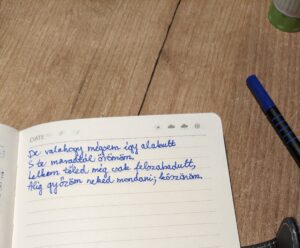 DATE
De valahogy mégsem így alakult
S te maradtál örömöm,
Lelkem tőled még csak felszabadult,
Alig győzöm neked mondani; köszönöm.